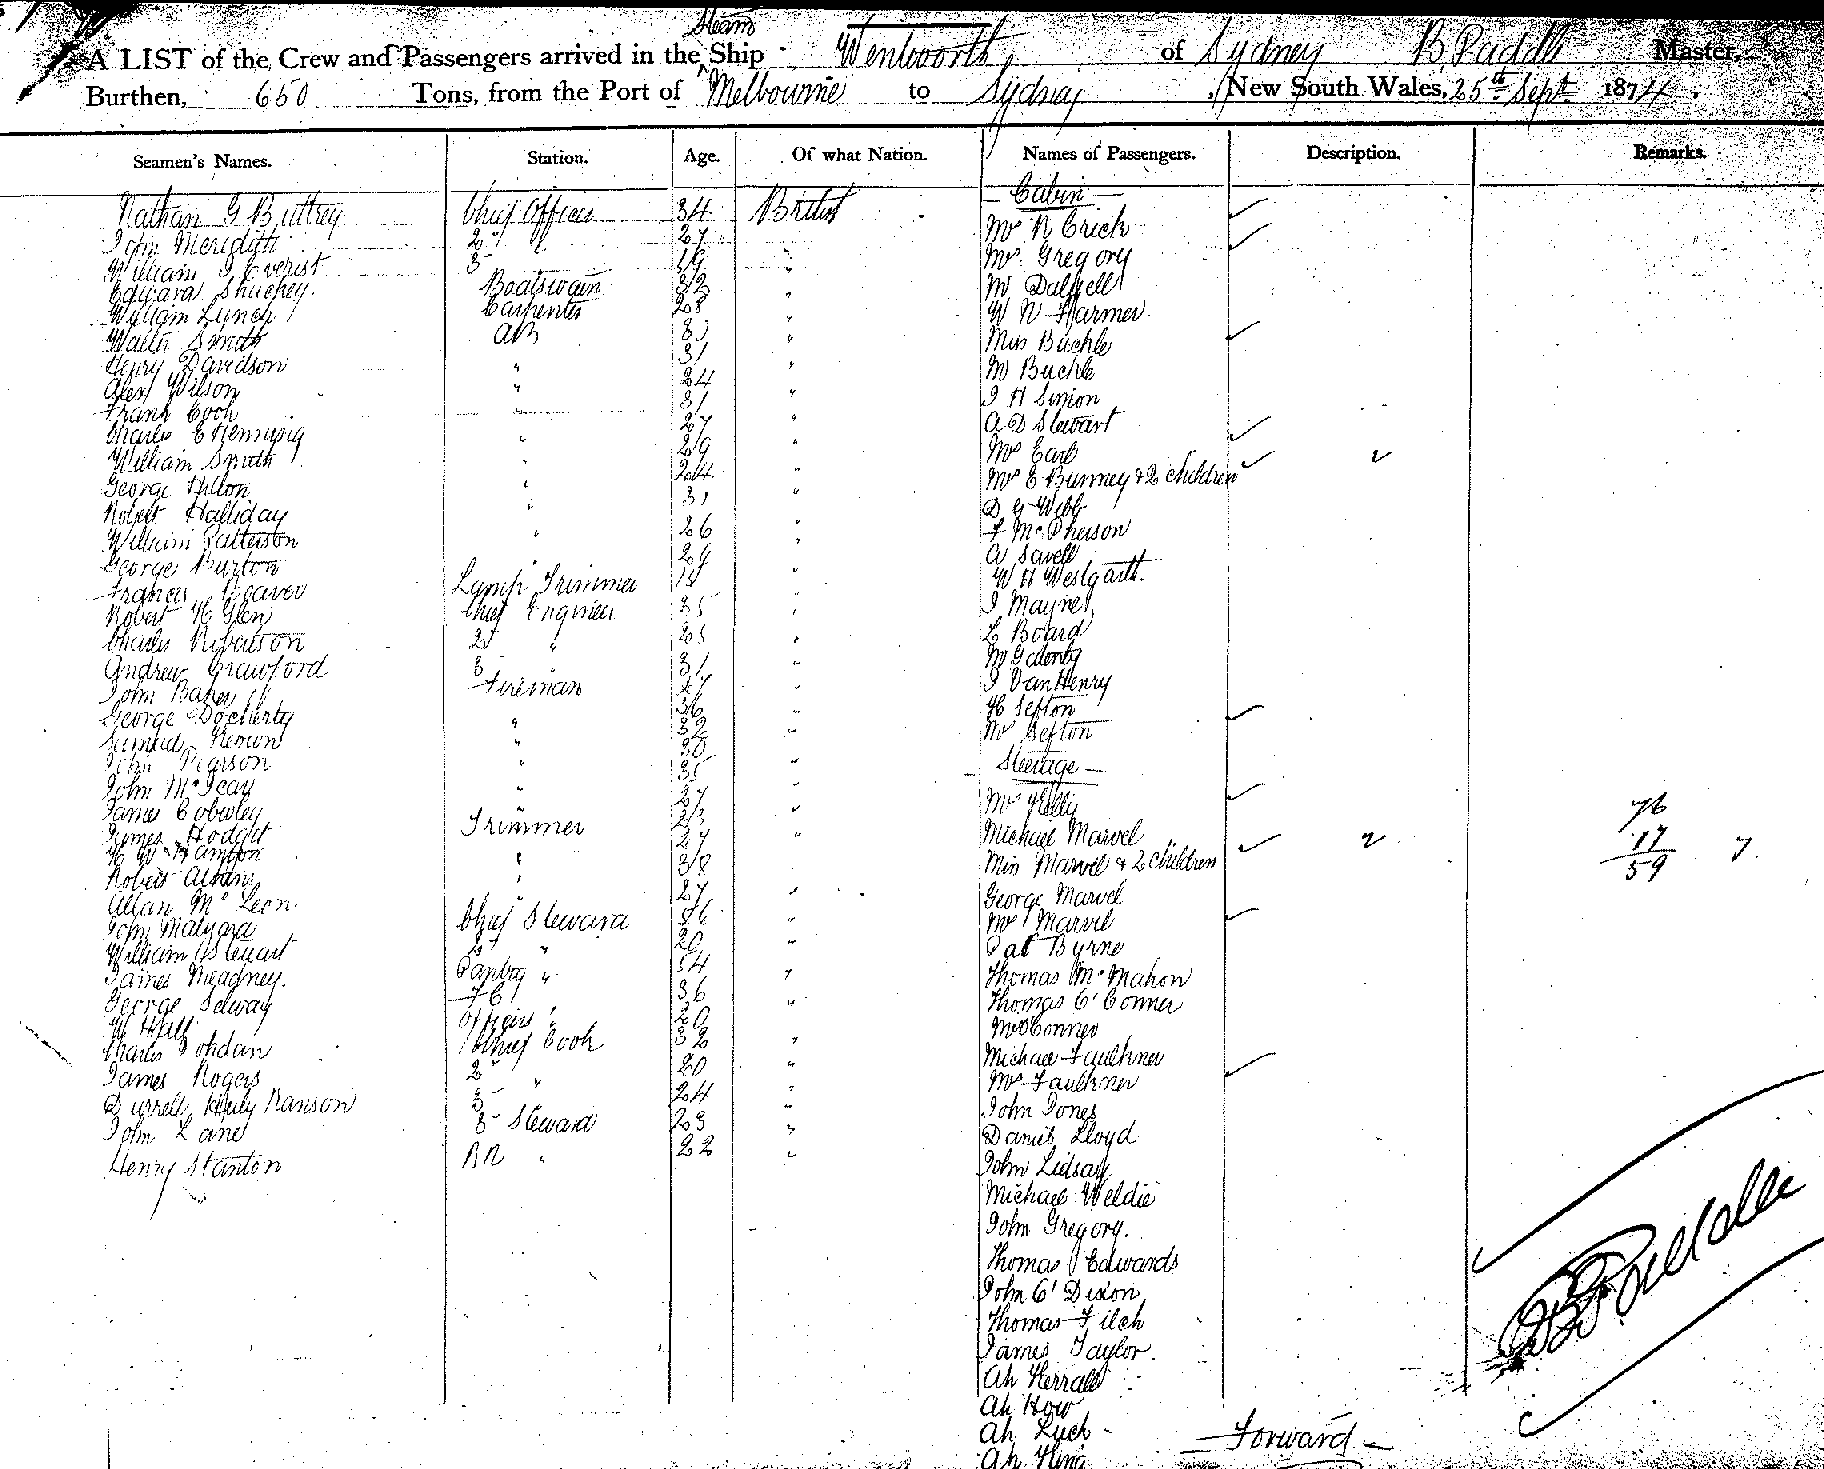 Steam
A LIST of the Crew and Passengers arrived in the Ship Wentworth of Sydney B Paddle Master,
Burthen, 650 Tons, from the Port of Melbourne to Sydney, New South Wales, 25th Sept 1874.
Seamen's Names. Station. Age. Of what Nation. Names of Passengers. Description. Remarks.
Cabin
Nathan G Buttrey Chief Officer 34 British Mrs N Erich
John Meridith 2 " 27 " Mrs Gregory
William Everist 3 19 "
Edward Stuckey Boatswain 32 " Mr Dalzell
William Lynch Carpenter 28 " W N Harmer
Walter Smith AB " Miss Buckle
Henry Davidson " 31 " Mr Buckle
Alex Wilson " 24 " J H Simon
Frank Cook 31 " A D Stewart
Charles E " 27 "
William Smith " 29 " Mrs Earl
George Hilton " 24 " Mrs E Burney & 2 children
Robert Halliday " 31 " D G Webb
William Patterson " 26 " F McPherson
George Burton 29 " A Savell
Francis Weaver Lamp Trimmer " W H Westgarth.
Robert H Glen Chief Engineer 35 " J Mayne
Charles Robertson 2 " 25 " Board
Andrew Crawford 3 " 31 "
John Baker Fireman 27 " J VanHenry
George Docherty " 36 " H Sefton
Samuel Keown " 32 " Mrs Sefton
John Pearson " 30 " Steerage
John " 35 "
James " 27 " Mrs Kelly
James Hodget Trimmer 23 " Michael Marvel
H W Hamton " 27 " Miss Marvel & 2 children
76
17
59 7
Robert " 38
Allan McLeon " 27 " George Marvel
John Chief Steward " Mrs Marvel
William Stewart 2 " 20 " Pat Byrne
James Meadney. Pantry " 34 " Thomas McMahon
George Selway FC 36 " Thomas O'Conner
W Hall Officers " 20 " Mrs OConner
Charles Jordan Chief Cook 32 " Michael Faulkner
James Rogers 2 " 20 " Mrs Faulkner
Durrell Henry Ranson 3 24 " John Jones
John Lane 3 Steward 23 " Daniel Lloyd
Henry Stanton " 22 " John Lidsay
Michael Weldie
John Gregory.
Thomas Edwards
John O' Dixon
Thomas Filch
James Taylor.
Ah
Ah How
Ah
Ah King
Forward
B Paddle